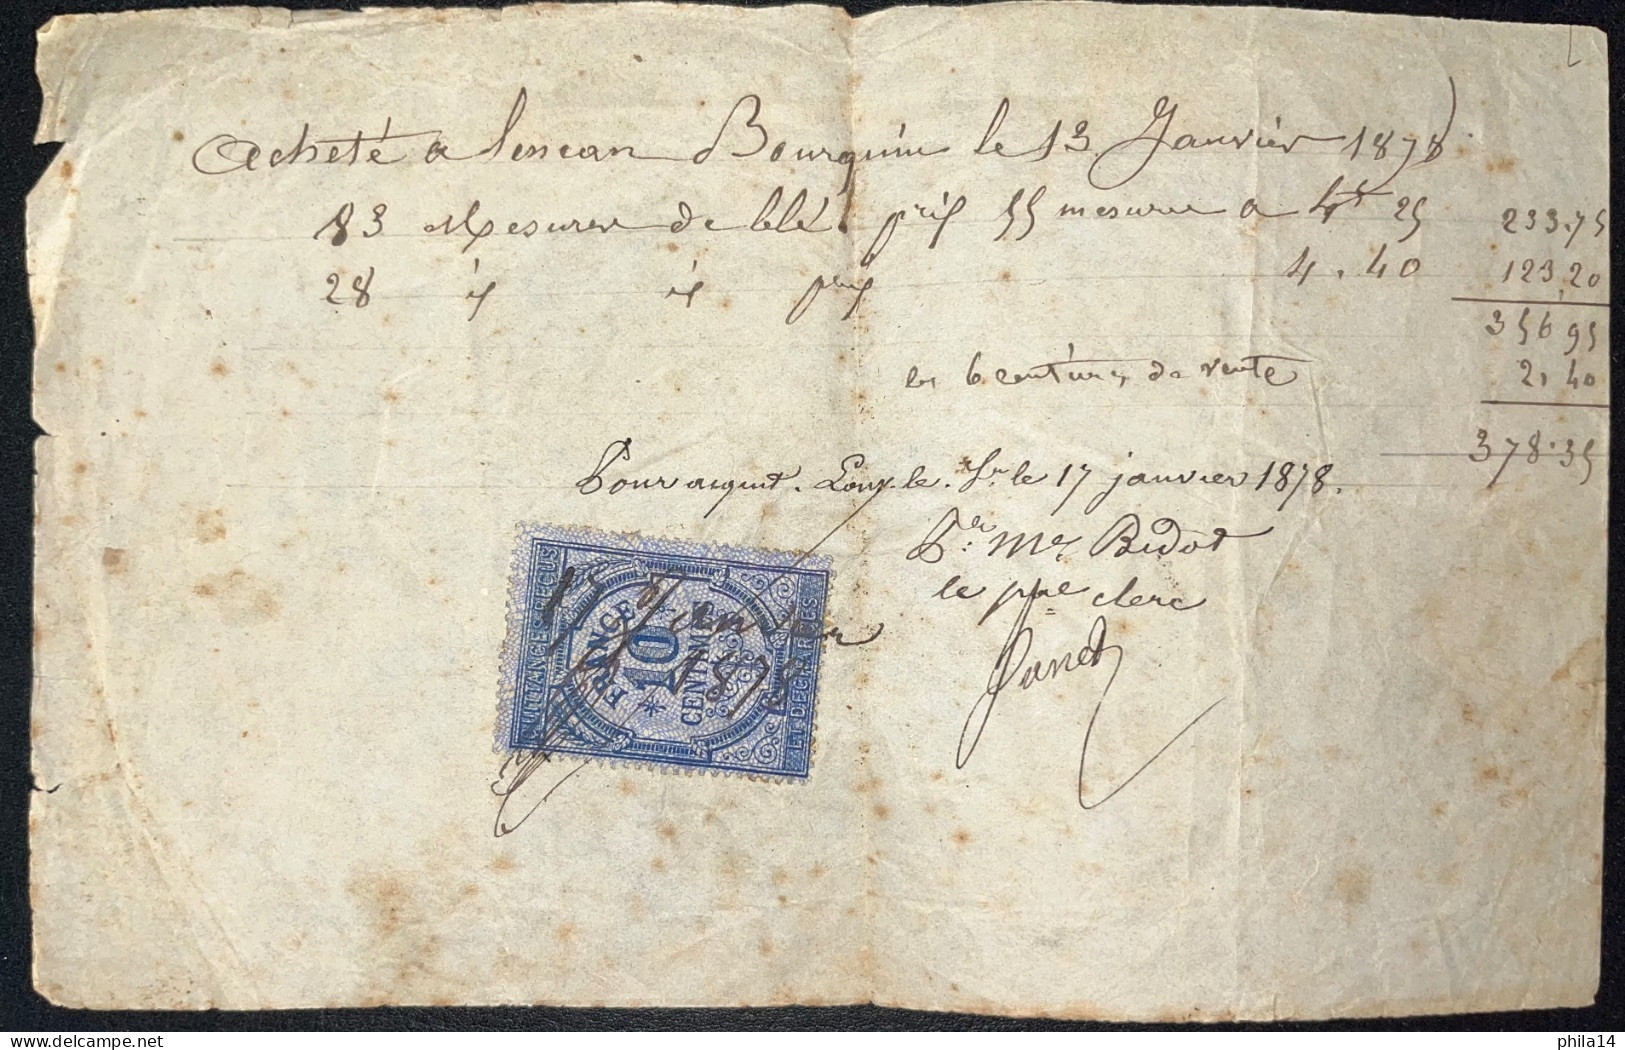 Acheté a lencan Bourquin le 13 Janvier 1878
83 Mesures de blé prix 55 mesures a 4f 25 233.75
28 id id prix 4.40 123,20
356 95
les 6 centimes de vente 21 40
378.35
Pour acquit. Lons.le.Sr. le 17 janvier 1878.
Pr. Me Bidot
le pal clerc
17 Janvier
1878
QUITTANCES RECUS
FRANCE
10
CENTIMES
ET DECHARGES
phila14